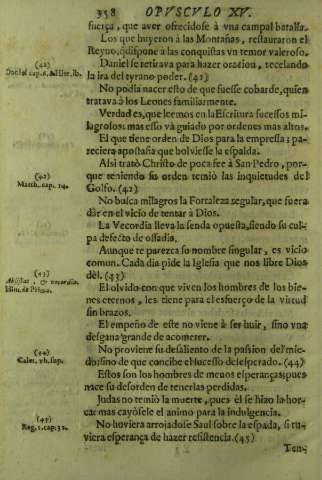 358 OPUSCULO XV.
fuerça, que aver ofrecidose à vna campal batalla.
Los que huyeron à las Montañas, restauraron el
Reyno, q̃ dispone à las conquistas vn temor valeroso.
Daniel se retirava para hazer oracion, recelando
la ira del tyrano poder. (41)
No podia nacer esto de que fuesse cobarde, quien
tratava à los Leones familiarmente.
Verdad es, que leemos en la Escritura sucessos mi-
lagrosos: mas esso và guiado por ordenes mas altos.
El que tiene orden de Dios para la empressa; pa-
reciera apostasia que bolviesse la espalda.
Assi tratò Christo de poca fee à San Pedro, por-
que teniendo su orden temiò las inquietudes del
Golfo. (42)
No busca milagros la Fortaleza regular, que fuera
dàr en el vicio de tentar à Dios.
La Vecordia lleva la senda opuesta, siendo su cul-
pa defecto de ossadia.
Aunque te parezca su nombre singular, es vicio
comun. Cada dia pide la Iglesia que nos libre Dios
dèl. (43)
El olvido con que viven los hombres de los bie-
nes eternos, les tiene para el esfuerço de la virtud
sin brazos.
El empeño de este no viene à ser huir, sino vna
desgana grande de acometer.
No proviene su desaliento de la passion del mie-
do, sino de que concibe el sucesso desesperado. (44)
Estos son los hombres de menos esperanças; pues
nace su desorden de tenerlas perdidas.
Judas no temiò la muerte, pues èl se hizo la hor-
ca: mas cayòsele el animo para la indulgencia.
No huviera arrojadose Saul sobre la espada, si tu-
viera esperança de hazer resistencia. (45)
Ten-
(42)
Matth. cap. 14.
(43)
(44)
(45)
Reg. 1. cap. 31.